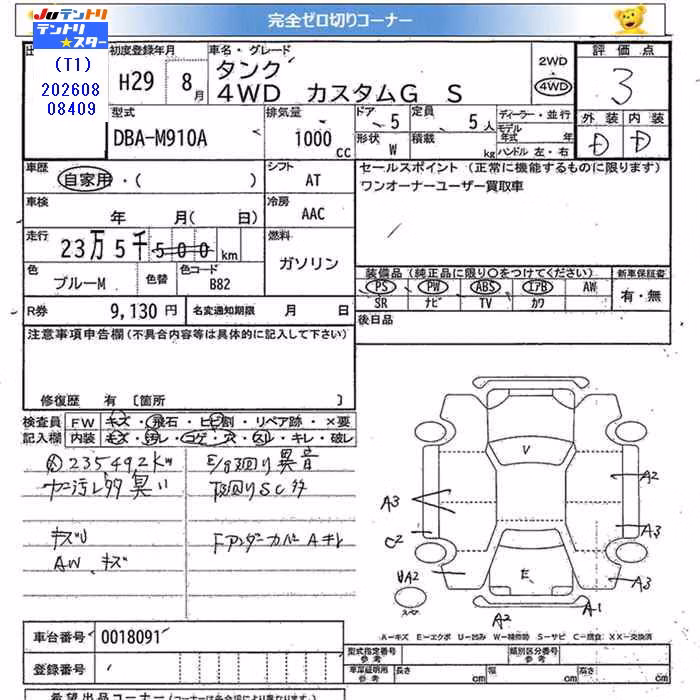 完全ゼロ切りコーナー
Juテントリ
テントリ★スター
(T1)
202608
08409
初度登録年月
H29 8月
車名・グレード
タンク
4WD カスタムG S
2WD
4WD
評価点
3
外装 内装
D D
型式
DBA-M910A
排気量
1000 cc
ドア 5
定員 5人
形状 W
積載 kg
ディーラー・並行
モデル年式 年
ハンドル 左・右
車歴
自家用・( )
シフト
AT
セールスポイント (正常に機能するものに限ります)
ワンオーナーユーザー買取車
車検
年 月( 日)
冷房
AAC
走行
23万5千500km
燃料
ガソリン
色
ブルーM
色替
色コード
B82
装備品 (純正品に限り○をつけてください)
新車保証書
PS PW ABS エアB AW
SR ナビ TV カワ
有・無
R券 9,130円
名変通知期限 月 日
後日品
注意事項申告欄(不具合内容等は具体的に記入して下さい)
修復歴 有 〔箇所 〕
検査員記入欄
FW キズ・飛石・ヒビ割・リペア跡・×要
内装 キズ・汚れ・コゲ・穴・スレ・キレ・破レ
235492km
E/g廻り異音
下廻りSC付
キズU
AW キズ
Fアンダーカバーキレ
V
A2
A3
A3
C2
UA2
E
A3
A2
A1
A-キズ E-エクボ U-凹み W-補修跡 S-サビ C-腐食 XX-交換済
車台番号 0018091
登録番号
型式指定番号 参考
類別区分番号 参考
車庫証明用 参考
長さ cm
幅 cm
高さ cm
希望出品コーナー